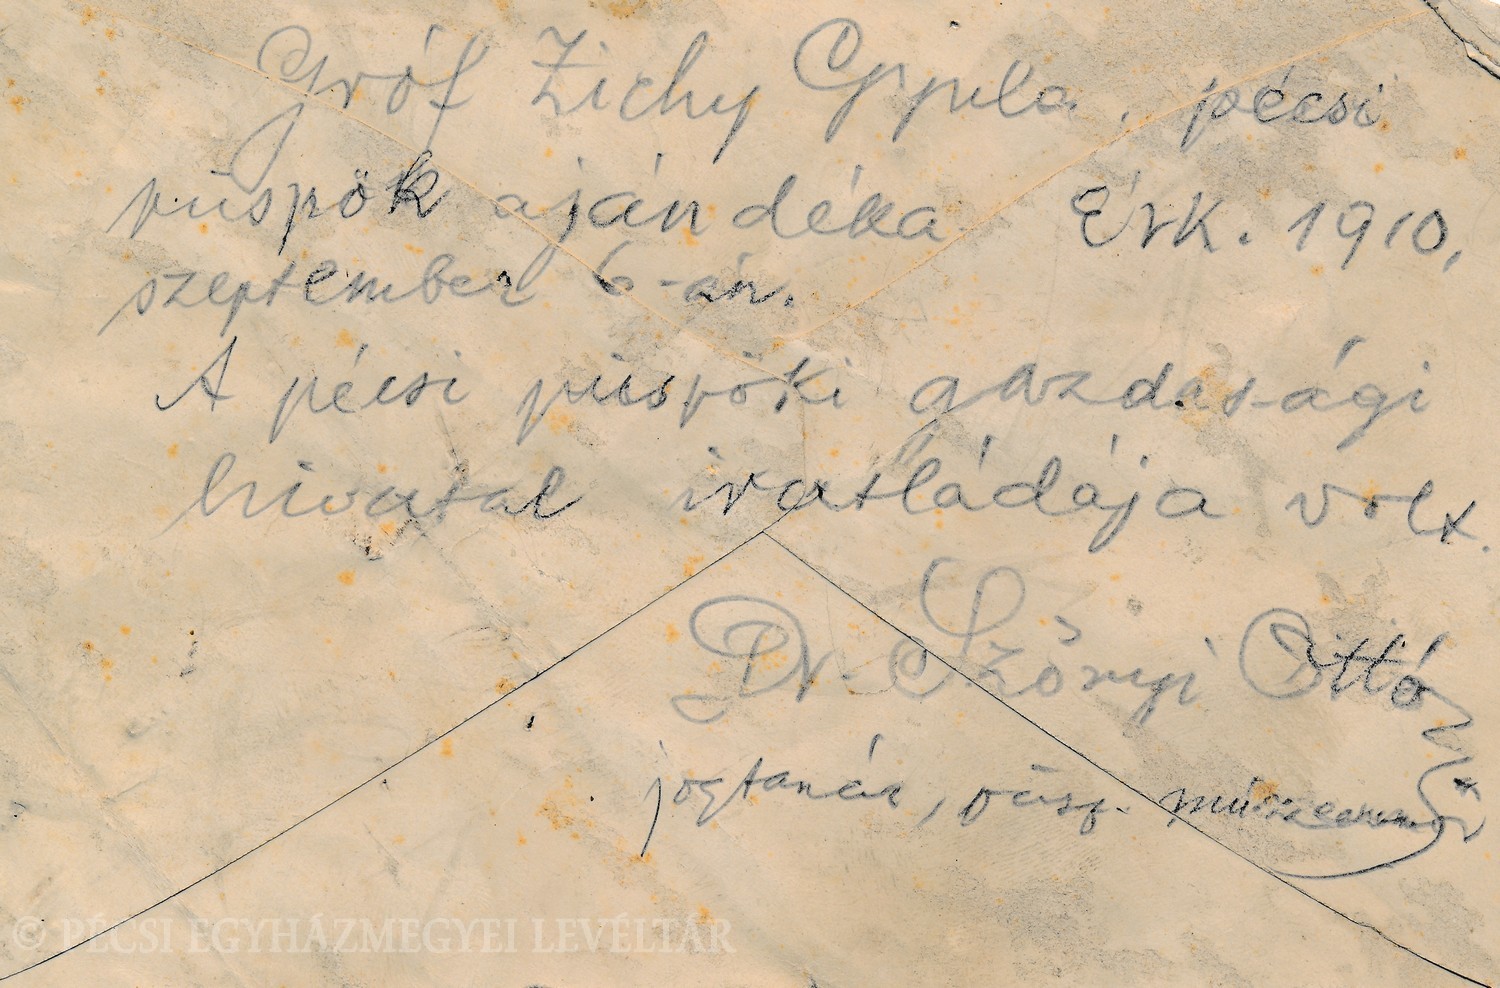 Gróf Zichy Gyula, pécsi
püspök ajándéka. Érk. 1910,
szeptember 6-án.
A pécsi püspöki gazdasági
hivatal iratládája volt.
Dr. Szőnyi Ottó
jogtanár, püsp. múzeum
© PÉCSI EGYHÁZMEGYEI LEVÉLTÁR